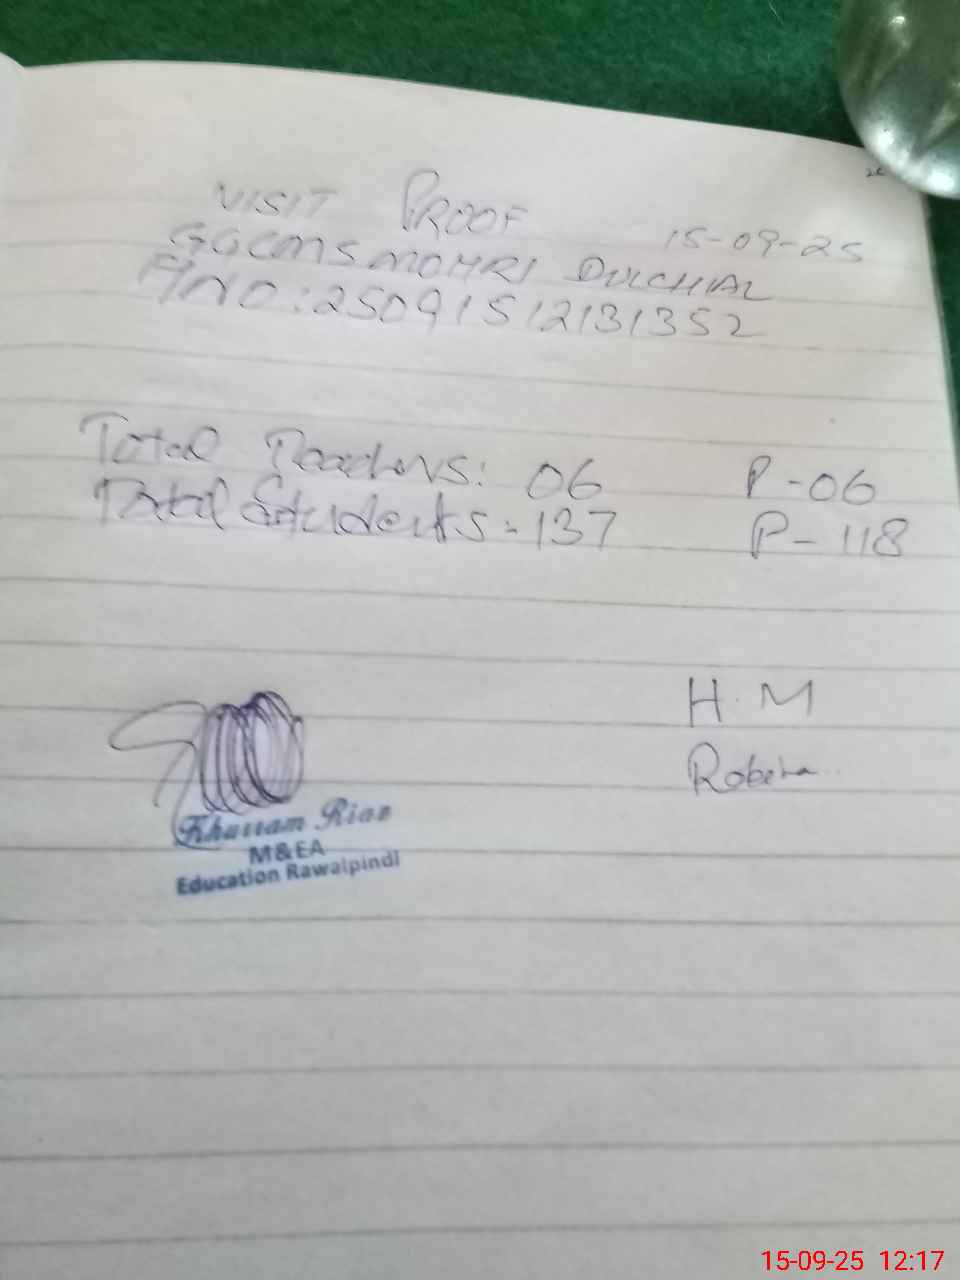 VISIT PROOF 15-09-25
GGCMS MOHRI DULCHIAL
ANO: 250915 12131352
Total Teachers: 06 P-06
Total Students: 137 P-118
H.M
Robena
Khurram Riaz
M&EA
Education Rawalpindi
15-09-25 12:17